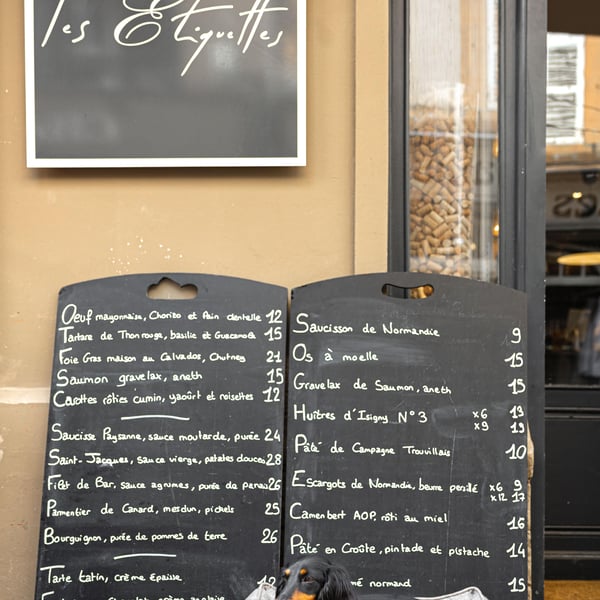 les Etiquettes
Oeuf mayonnaise, Chorizo et Pain dentelle 12
Tartare de Thon rouge, basilic et Guacamole 15
Foie Gras maison au Calvados, Chutney 21
Saumon gravelax, aneth 15
Carottes rôties cumin, yaourt et noisettes 12
Saucisse Paysanne, sauce moutarde, purée 24
Saint-Jacques, sauce vierge, patates douces 28
Filet de Bar, sauce agrumes, purée de panais 26
Parmentier de Canard, mesclun, pickels 25
Bourguignon, purée de pommes de terre 26
Tarte tatin, crème épaisse 12
Saucisson de Normandie 9
Os à moelle 15
Gravelax de Saumon, aneth 15
Huîtres d'Isigny N°3 x6 13
x9 19
Pâté de Campagne Trouvillais 10
Escargots de Normandie, beurre persillé x6 9
x12 17
Camembert AOP, rôti au miel 16
Pâté en Croûte, pintade et pistache 14
normand 15